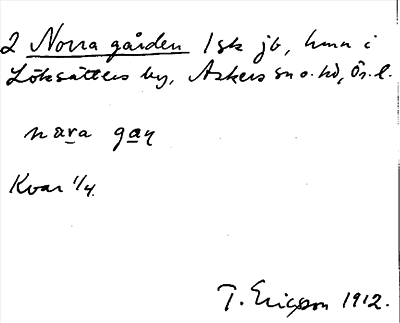 2 Norra gården 1 sk jb, hmn i
Löksätters by, Askers sn o. hd, Ör. l.
nara gaɳ
Kvar 1/4.
T. Ericsson 1912.